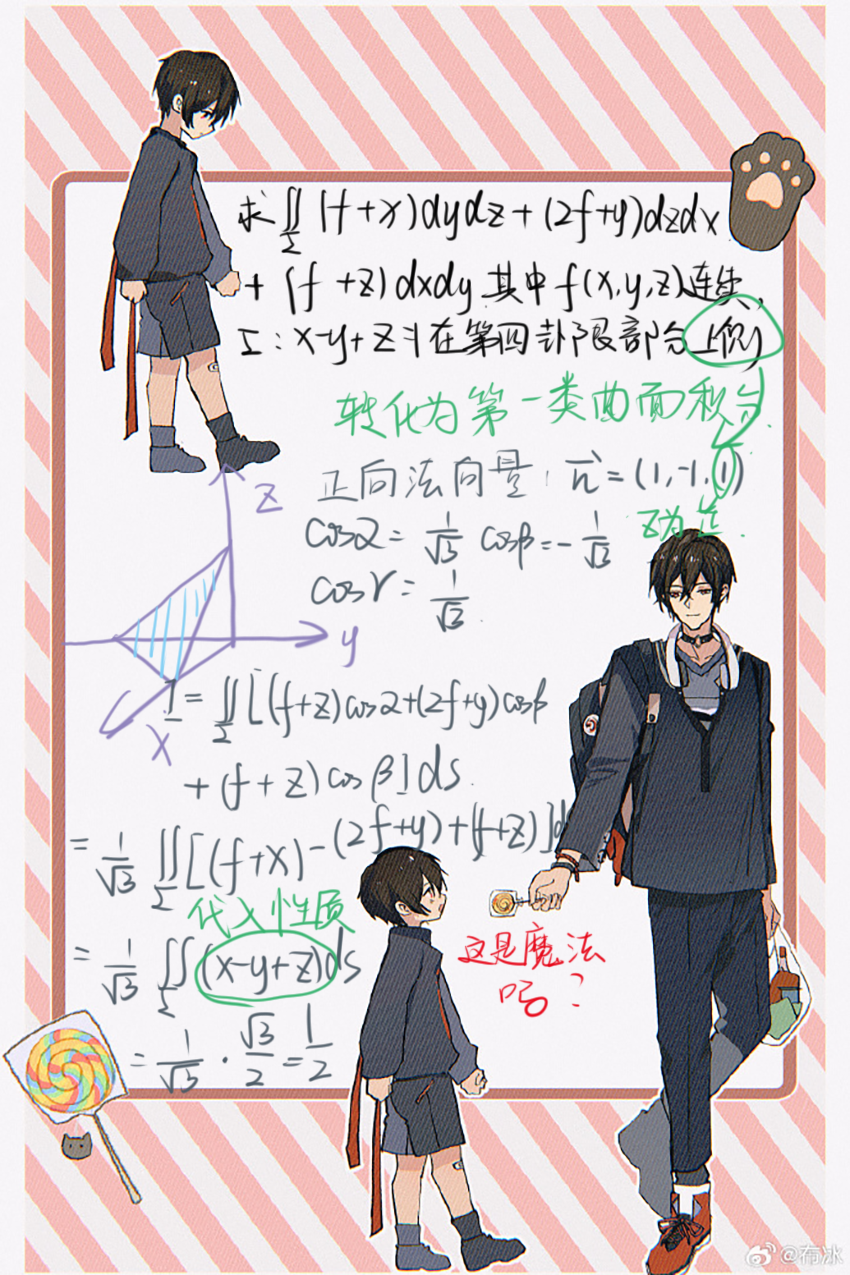 求∬Σ (f+x)dydz+(2f+y)dzdx
+(f+z)dxdy 其中f(x,y,z)连续,
Σ:x-y+z=1在第四卦限部分上侧
转化为第一类曲面积分
正向法向量: n→=(1,-1,1)
z为正.
cosα=1/√3 cosβ=-1/√3
cosγ=1/√3.
z
y
x
I=∬Σ[(f+z)cosα+(2f+y)cosβ
+(f+z)cosβ]ds.
=1/√3 ∬Σ[(f+x)-(2f+y)+(f+z)]d
代入性质
=1/√3 ∬Σ(x-y+z)ds
=1/√3·√3/2=1/2
这是魔法
吗?
@布冰